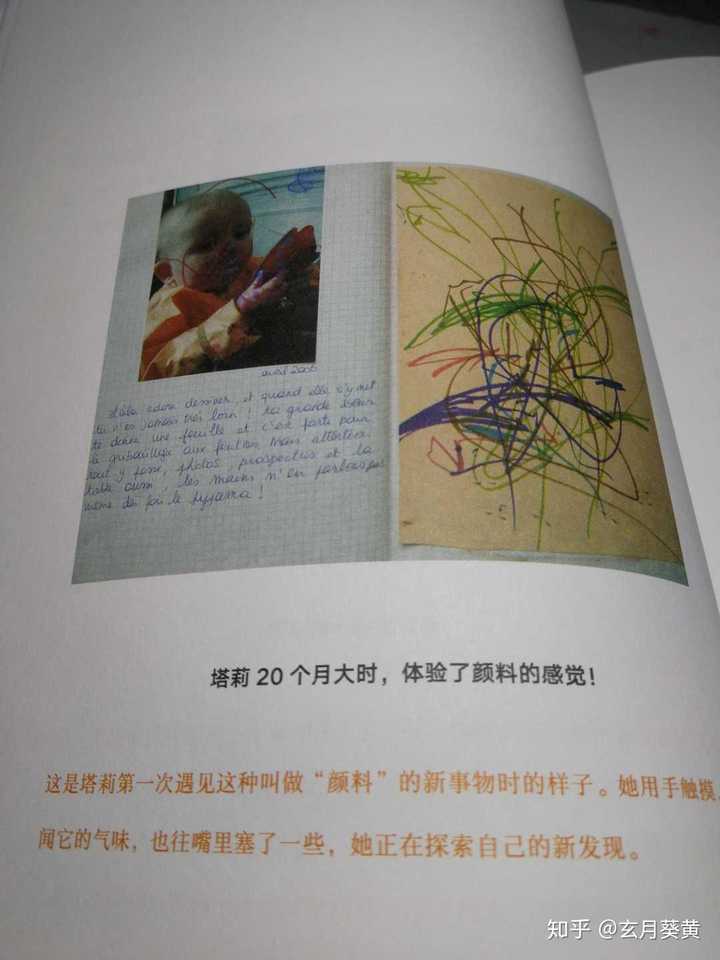 avril 2006
adore dessiner, et quand elle s'y met
tu n'es jamais très loin ! ta grande soeur
te donne une feuille et c'est parti pour
gribouillage aux feutres mais attention
tout y passe, photos, prospectus et la
table aussi, les mains n'en parlons pas
même des fois le pyjama !
塔莉 20 个月大时，体验了颜料的感觉！
这是塔莉第一次遇见这种叫做“颜料”的新事物时的样子。她用手触摸、
闻它的气味，也往嘴里塞了一些，她正在探索自己的新发现。
知乎 @玄月葵黄